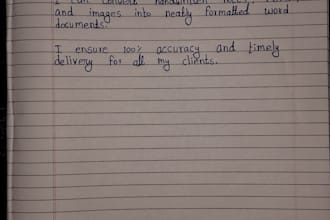 I can convert handwritten
and images into neatly formatted word
documents.
I ensure 100% accuracy and timely
delivery for all my clients.